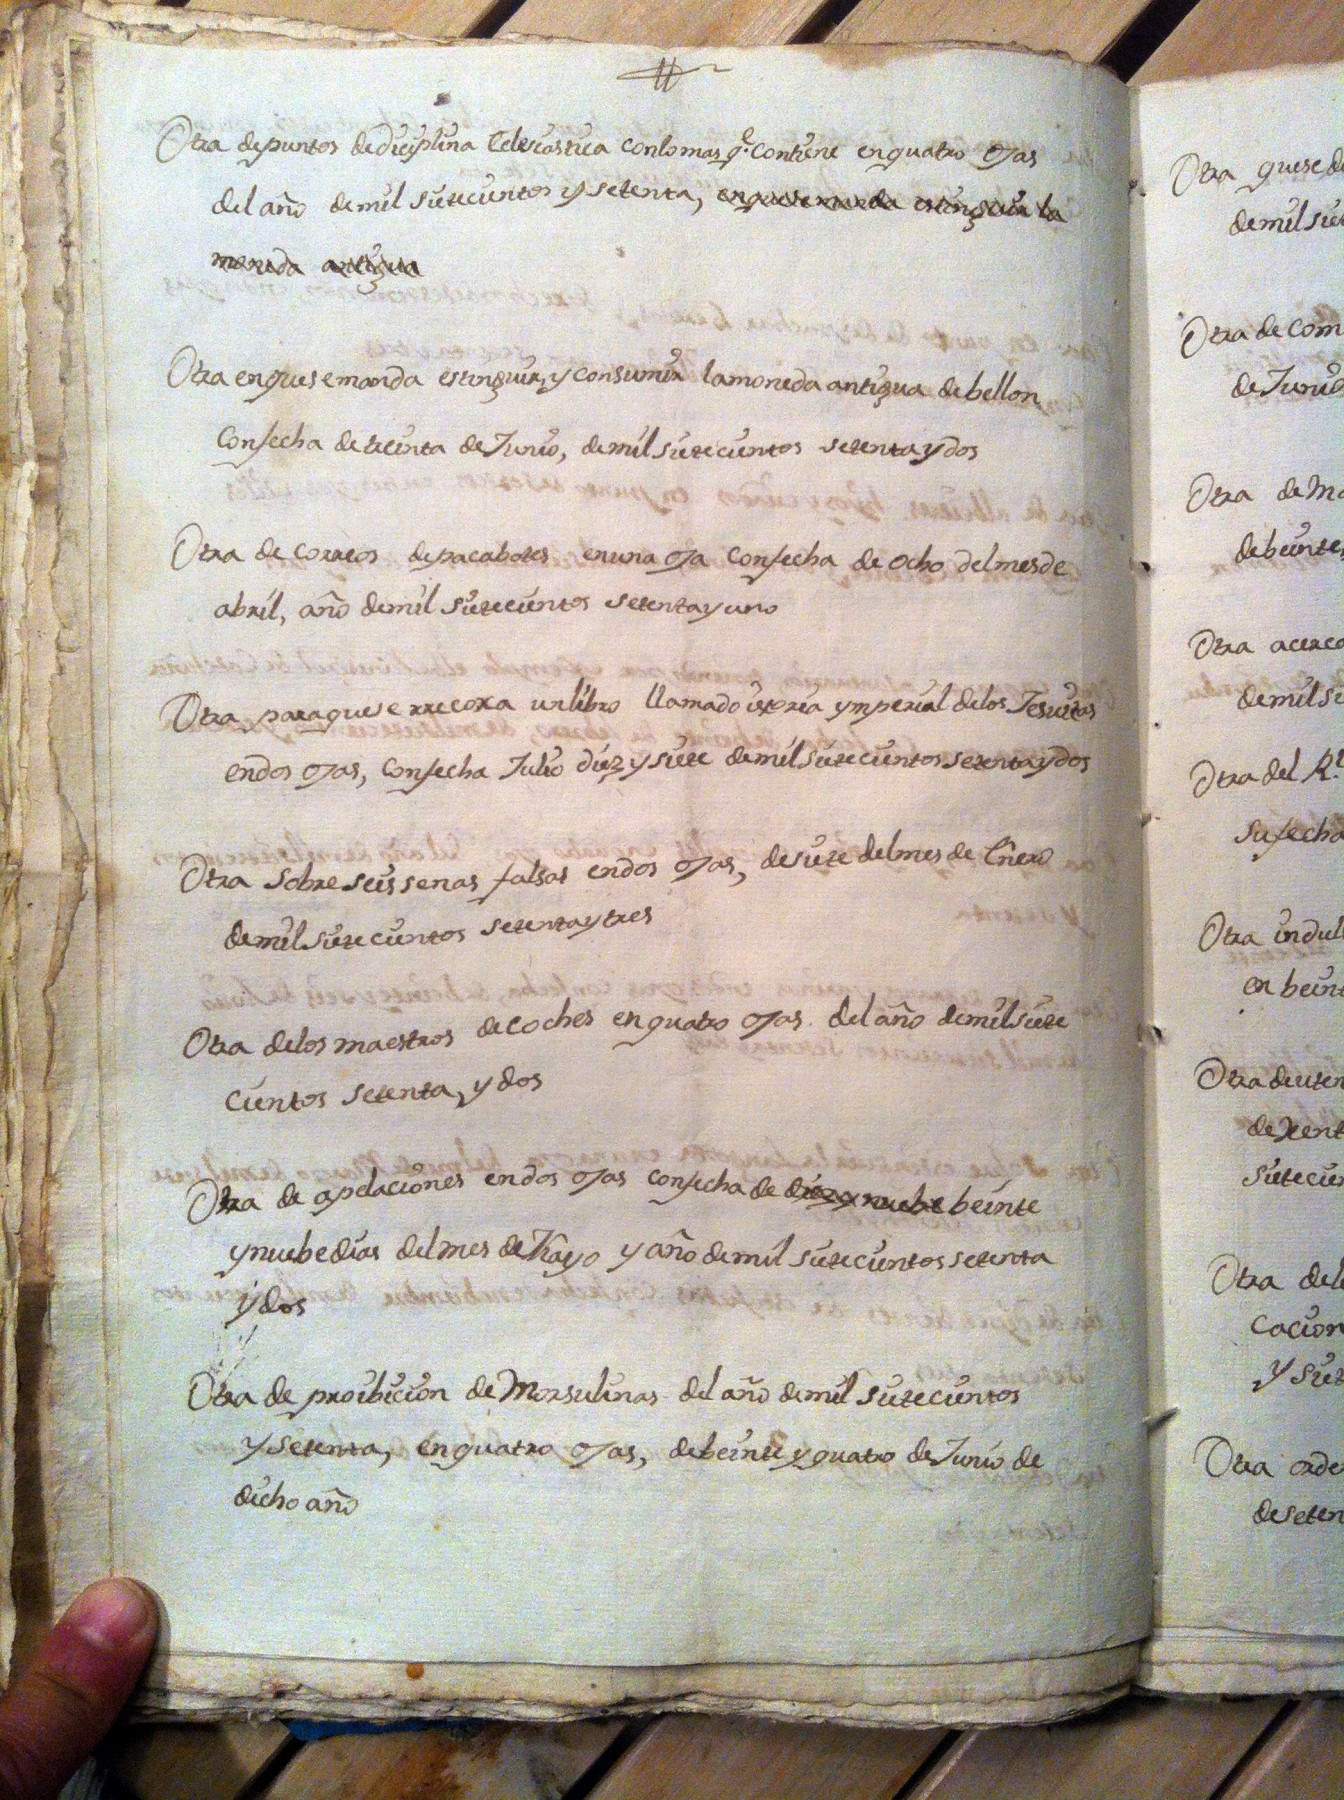 Otra depuntos dediciplina Eclesiastica conlomas q.e contiene enquatro ojas
del año demil sietecientos y setenta, enquese manda estinguir la
moneda antigua
Otra enquesemanda estinguir, y consumir lamoneda antigua debellon
Confecha de treinta deJunio, demil sietecientos setentaydos
Otra de correos depacabotes enuna oja Confecha de ocho delmesde
abril, año demil sietecientos setentayuno
Otra paraquese rrecoxa unlibro llamado istoria ymperial delos Jesuitas
endos ojas, Confecha Julio diez y siete demil sietecientos setentaydos
Otra sobre seis senas falsas endos ojas, desiete delmes de Enero
demil sietecientos setentaytres
Otra delos maestros decoches enquatro ojas del año demil siete
cientos setenta, y dos
Otra de apelaciones endos ojas confecha de diez y nuebe beinte
ynuebedias delmes deMayo y año demil sietecientos setenta
ydos
Otra de proibicion de Morsulinas del año demil sietecientos
ysetenta, enquatro ojas, debeinte y quatro deJunio de
dicho año
Otra quese de
demil sie
Otra de com
de Junio
Otra de
debeinte
Otra acerca
demil si
Otra del R.l
sufecha
Otra indul
en bein
Otra
de
sietecie
Otra del
cacion
y siet
Otra orde
deseten